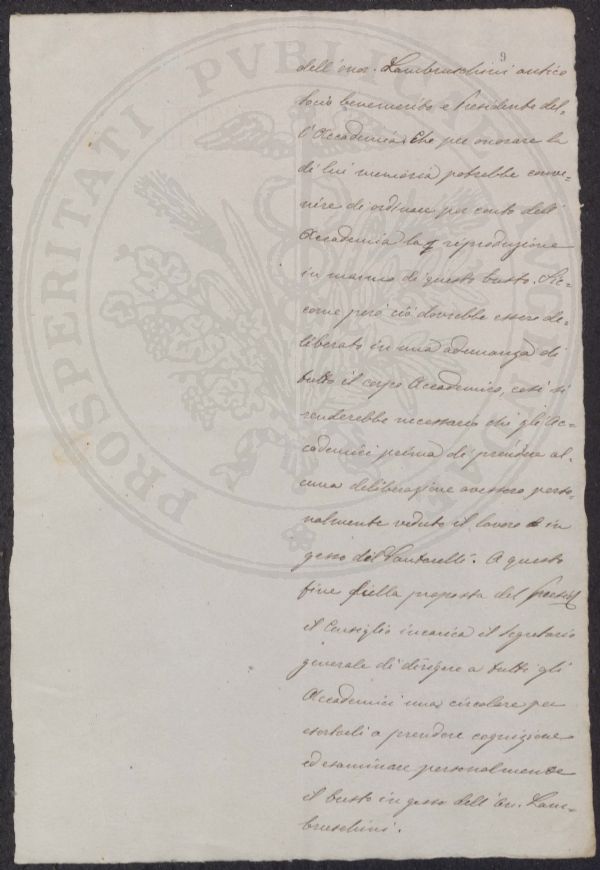 9
dell'onor. Lambruschini antico
socio benemerito e Presidente del-
l'Accademia. Che per onorare la
di lui memoria potrebbe conve-
nire di ordinare per conto dell'
Accademia la riproduzione
in marmo di questo busto. Sic-
come però ciò dovrebbe essere de-
liberato in una adunanza di
tutto il corpo Accademico, così si
renderebbe necessario che gli Ac-
cademici prima di prendere al-
cuna deliberazione avessero perso-
nalmente veduto il lavoro in
gesso del Santarelli. A questo
fine sulla proposta del
il Consiglio incarica il Segretario
generale di dirigere a tutti gli
Accademici una circolare per
esortarli a prendere cognizione
ed esaminare personalmente
il busto in gesso dell'on. Lam-
bruschini.
PROSPERITATI PVBLICAE AVGENDAE